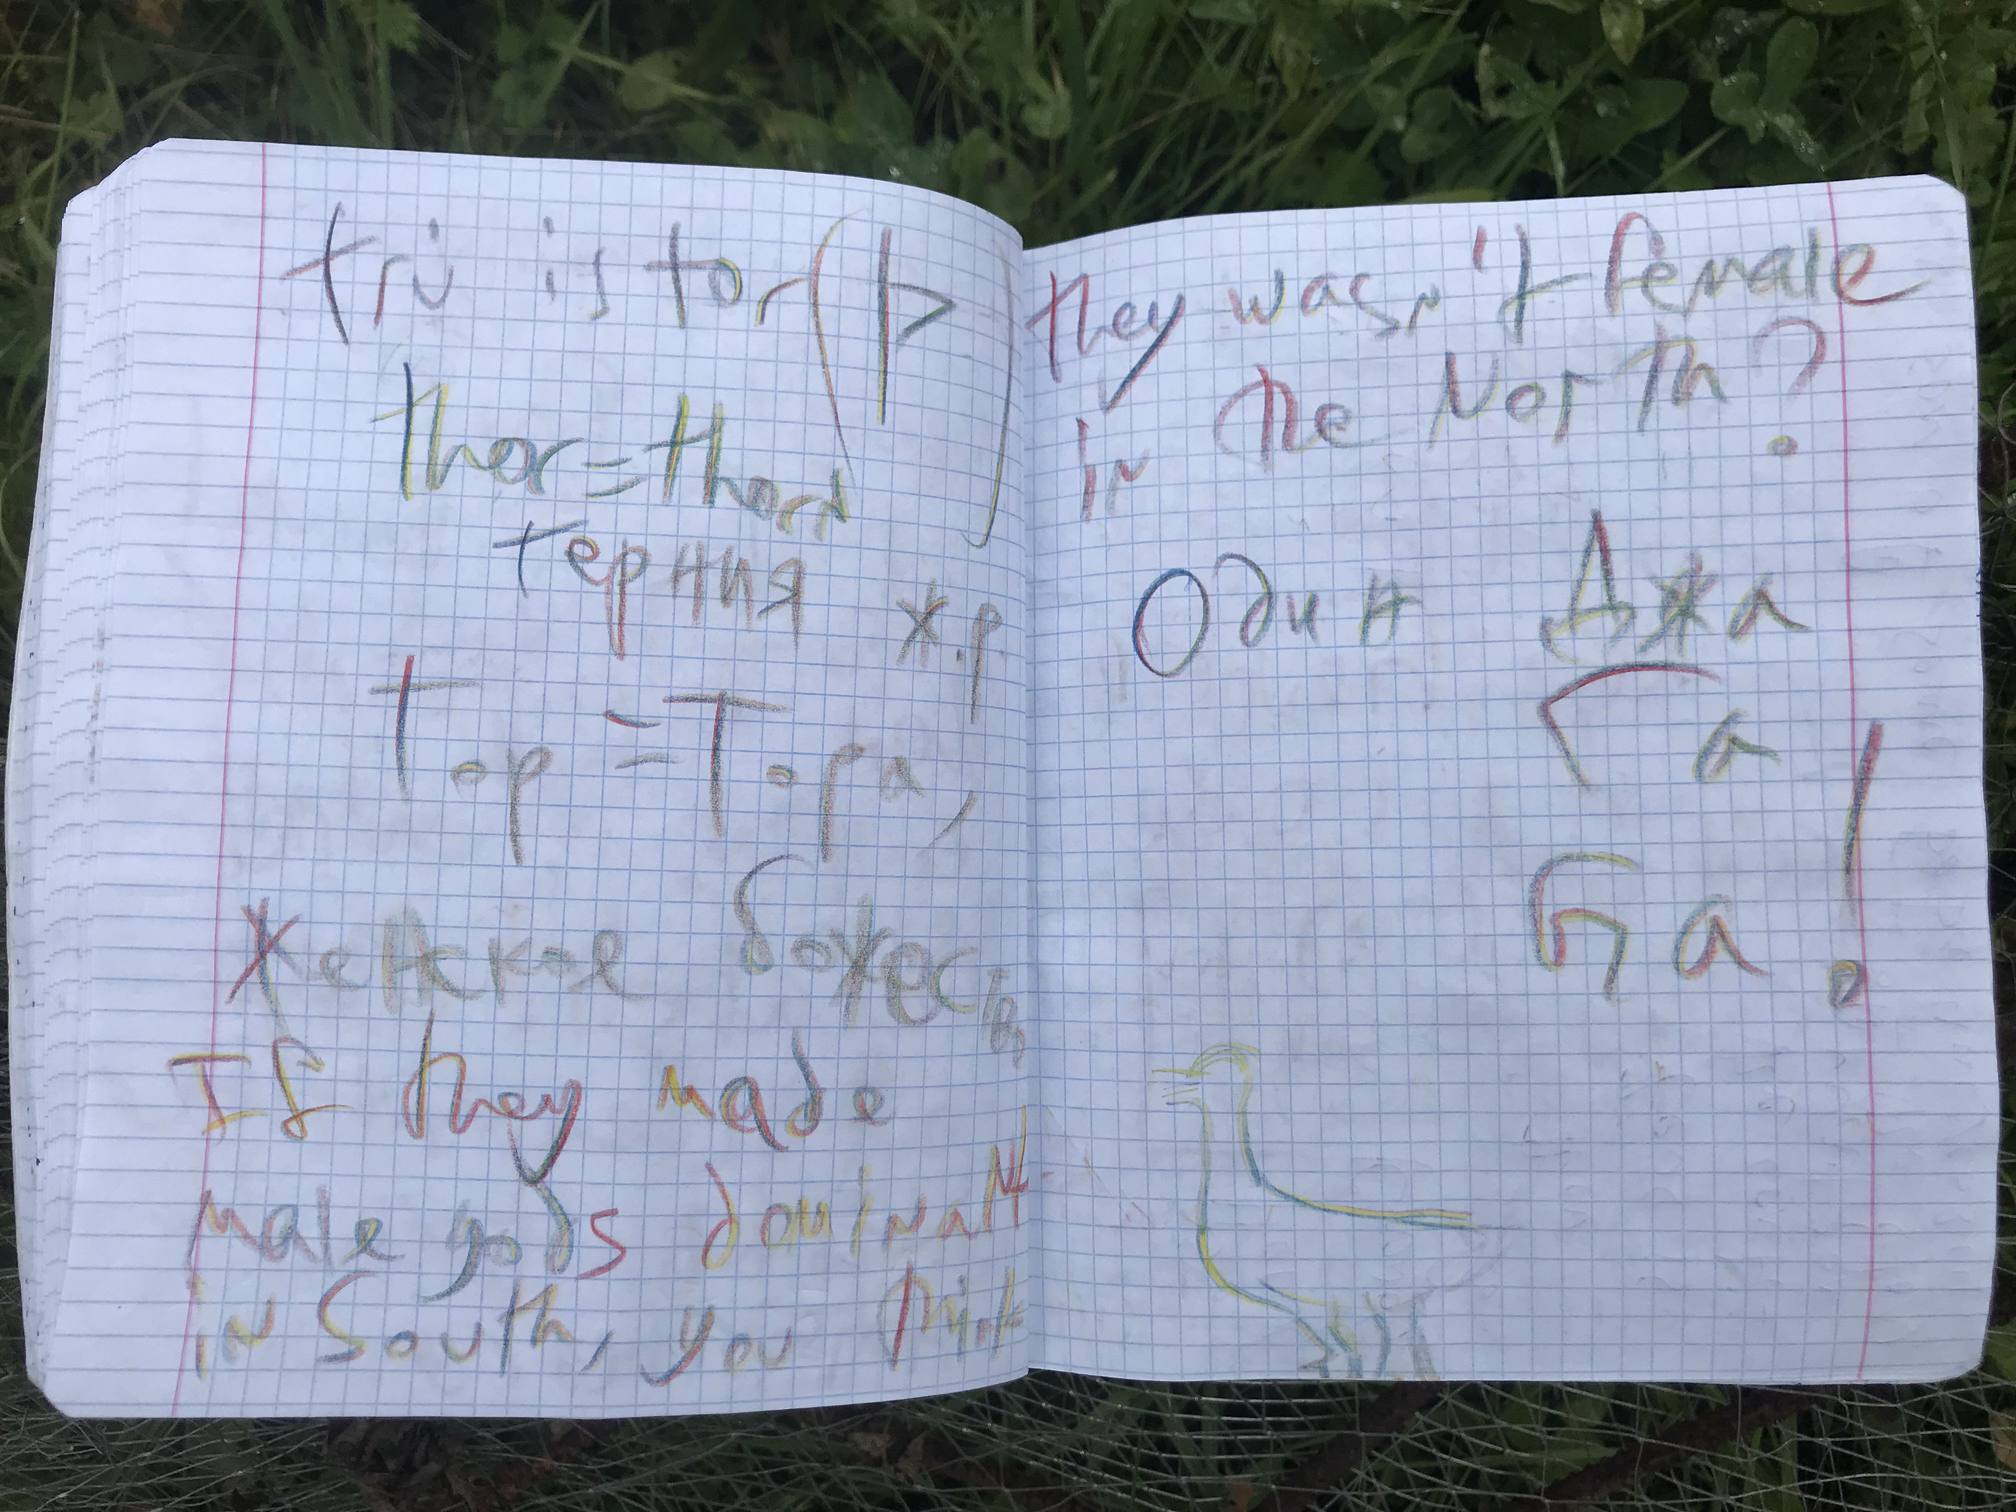 tri is tor (Þ)
thor = thorn
терния ж.р.
Тор = Тора,
Женское божество
If they made
male gods dominant
in South, you think
they wasn't female
in the North?
Один Джа
Га
Ба!